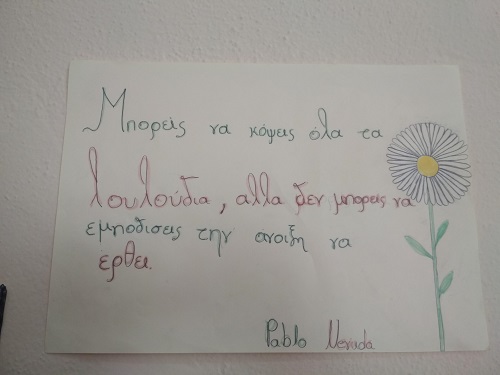 Μπορείς να κόψεις όλα τα
λουλούδια, αλλα δεν μπορεις να
εμποδισεις την ανοιξη να
ερθει.
Pablo Neruda